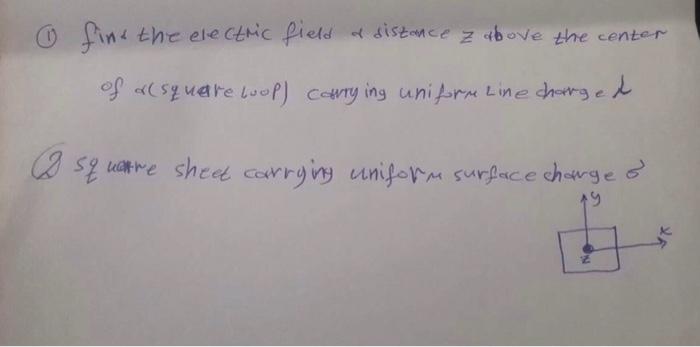 ① find the electric field a distance z above the center
of a (square loop) carrying uniform line charge λ
② square sheet carrying uniform surface charge σ
y
x
z